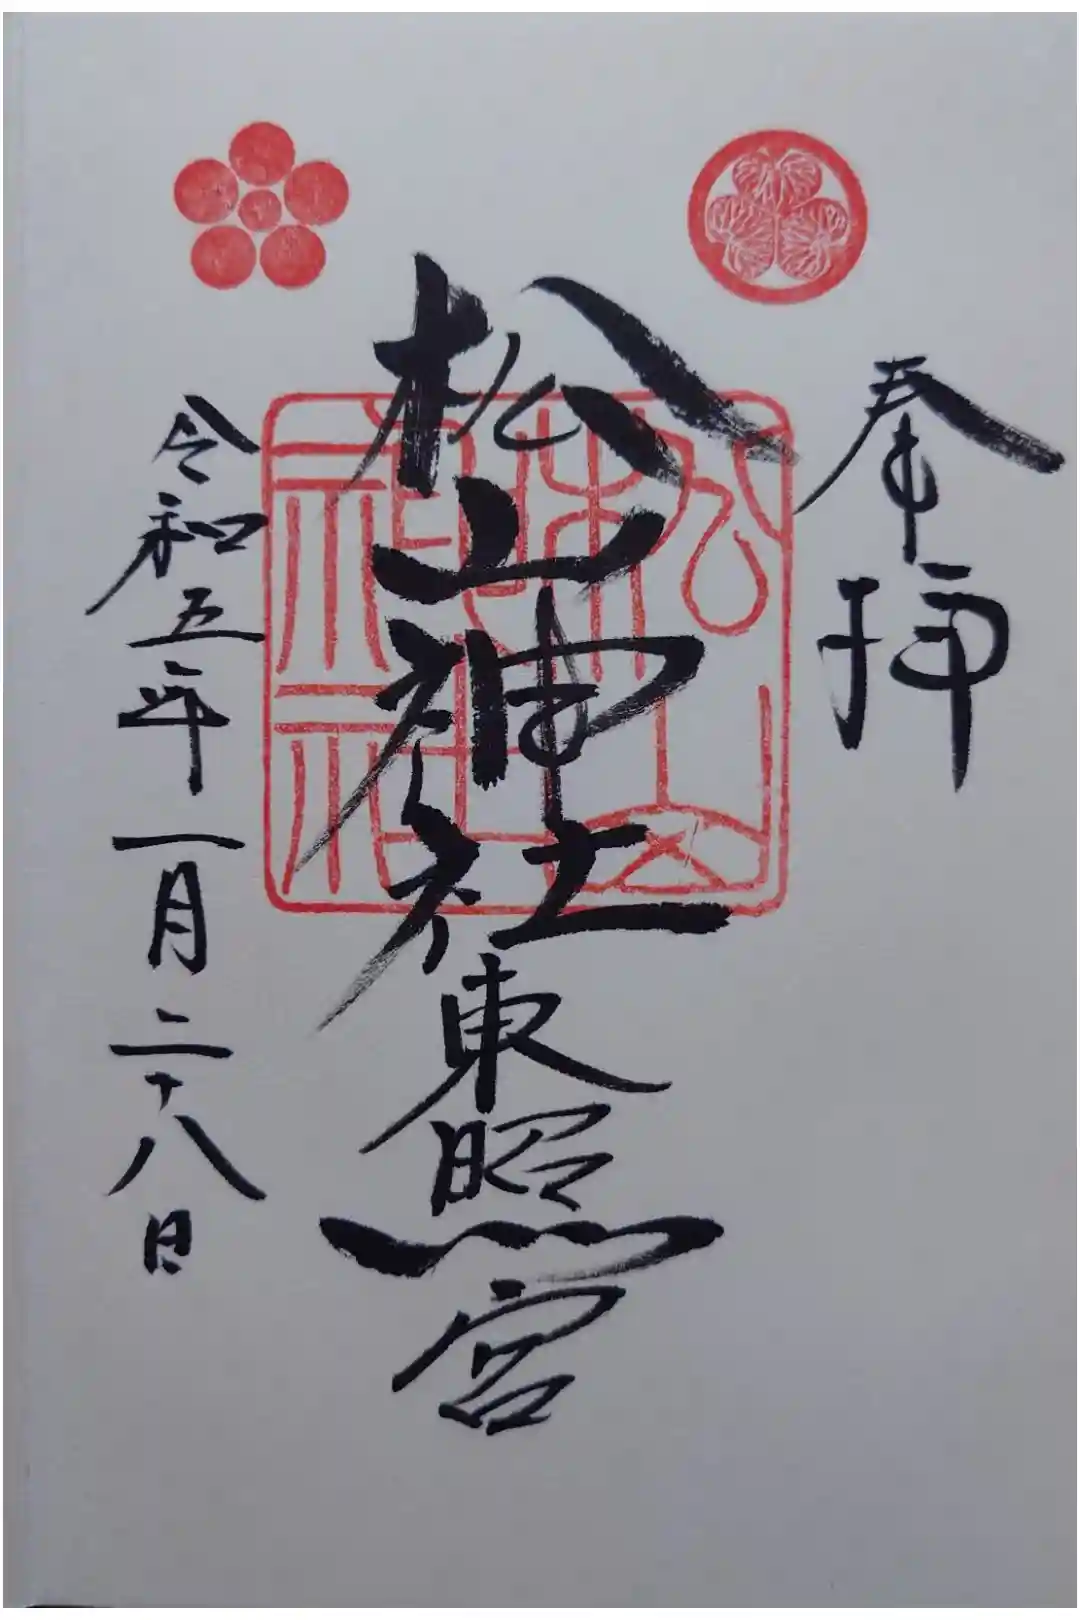 奉拝
松山神社東照宮
令和五年一月二十八日
松山
神社